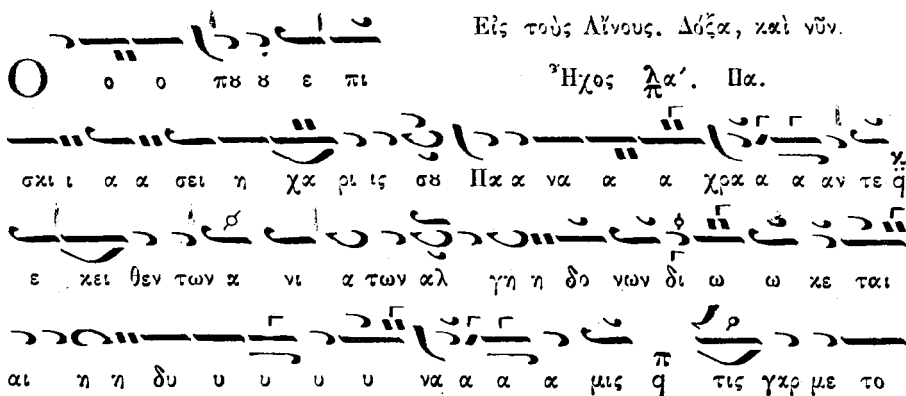 Εἰς τοὺς Αἴνους. Δόξα, καὶ νῦν.
Ο ο ο πȣ ȣ ε πι
Ἦχος λ/π α΄. Πα.
σκι ι α α σει η χα ρι ις σȣ Πα α να α α χρα α α αν τε q κ
ε κει θεν των α νι α των αλ γη η δο νων δι ω ω κε ται
αι η η δυ υ υ υ υ να α α α μις π q τις γαρ με το